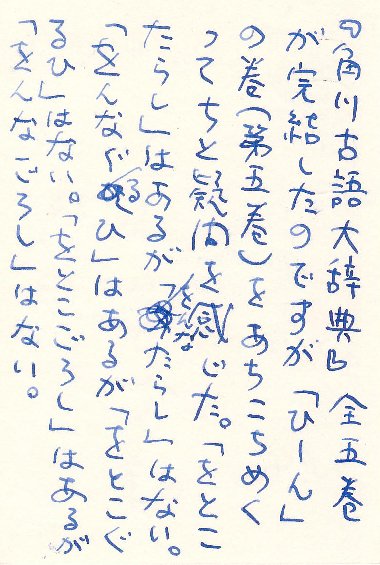 『角川古語大辞典』全五巻
が完結したのですが「ひーん」
の巻(第五巻)をあちこちめく
ってちと疑問を感じた。「をとこ
たらし」はあるが「をんなたらし」はない。
「をんなぐるひ」はあるが「をとこぐ
るひ」はない。「をとこごろし」はあるが
「をんなごろし」はない。